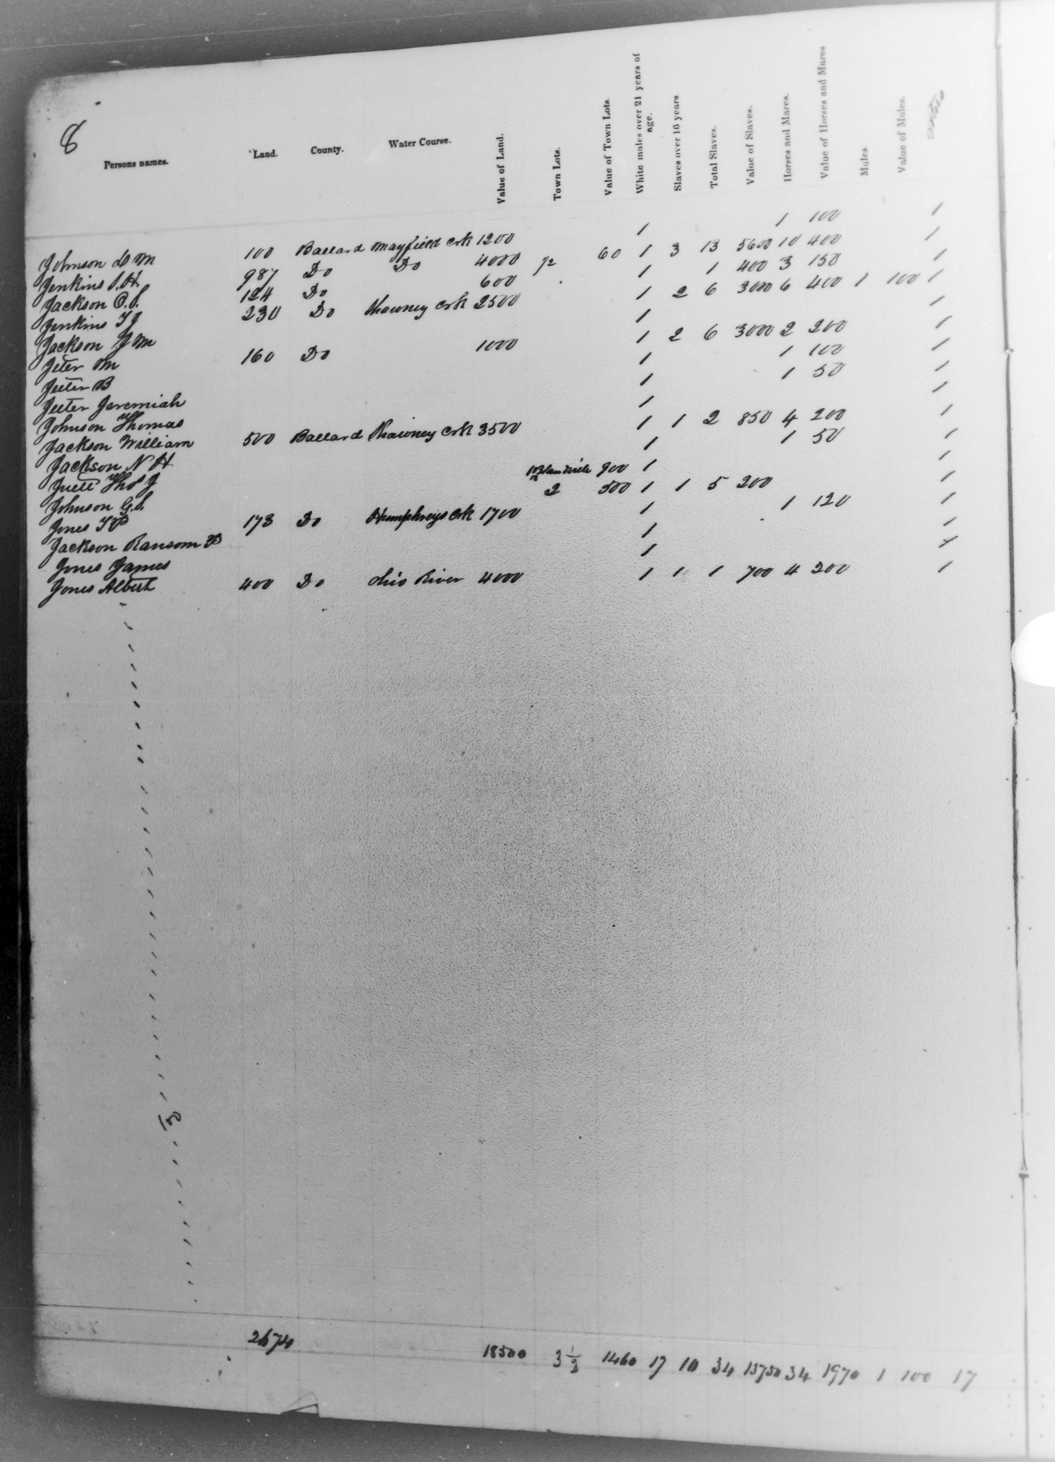 8
Persons names. Land. County. Water Course. Value of Land. Town Lots. Value of Town Lots. White males over 21 years of age. Slaves over 16 years Total Slaves. Value of Slaves. Horses and Mares. Value of Horses and Mares Mules. Value of Mules.
Johnson L M 100 Ballard Mayfield Crk 1200 1 1 100 1
Jenkins S.H. 987 Do Do 4000 1/2 60 1 3 13 5600 10 400 1
Jackson C.S. 124 Do 600 1 1 400 3 150 1
Jenkins T J 230 Do Shawney Crk 2500 1 2 6 3000 6 400 1 100 1
Jackson J M 1 1
Jeter Wm 160 Do 1000 1 2 6 3000 2 200 1
Jeeter B 1 1 100 1
Jeeter Jeremiah 1 1 50 1
Johnson Thomas 1 1
Jackson William 500 Ballard Shawney Crk 3500 1 1 2 850 4 200 1
Jackson N H 1 1 50 1
Juett Thos J 1 in Blandville 900 1 1
Johnson G.S. 2 500 1 1 5 200 1
Jones T P 173 Do Humphreys Crk 1700 1 1 120 1
Jackson Ransom P 1 1
Jones James 1 1
Jones Albert 400 Do Ohio River 4000 1 1 1 700 4 200 1
2674 18500 3 1/2 1460 17 10 34 13750 34 1970 1 100 17